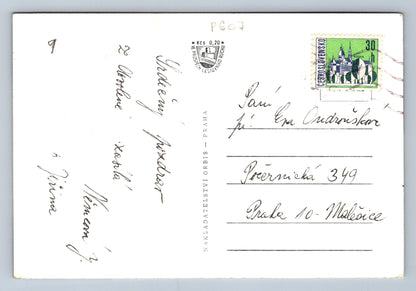 P607
9
Kčs 0,20
Srdečný pozdrav
Z Obořině zasílá
Němcová J.
a Jiřina
NAKLADATELSTVÍ ORBIS – PRAHA
ČESKOSLOVENSKO
30
h
Paní
pí Eva Ondroušková
Počernická 349
Praha 10 - Malešice